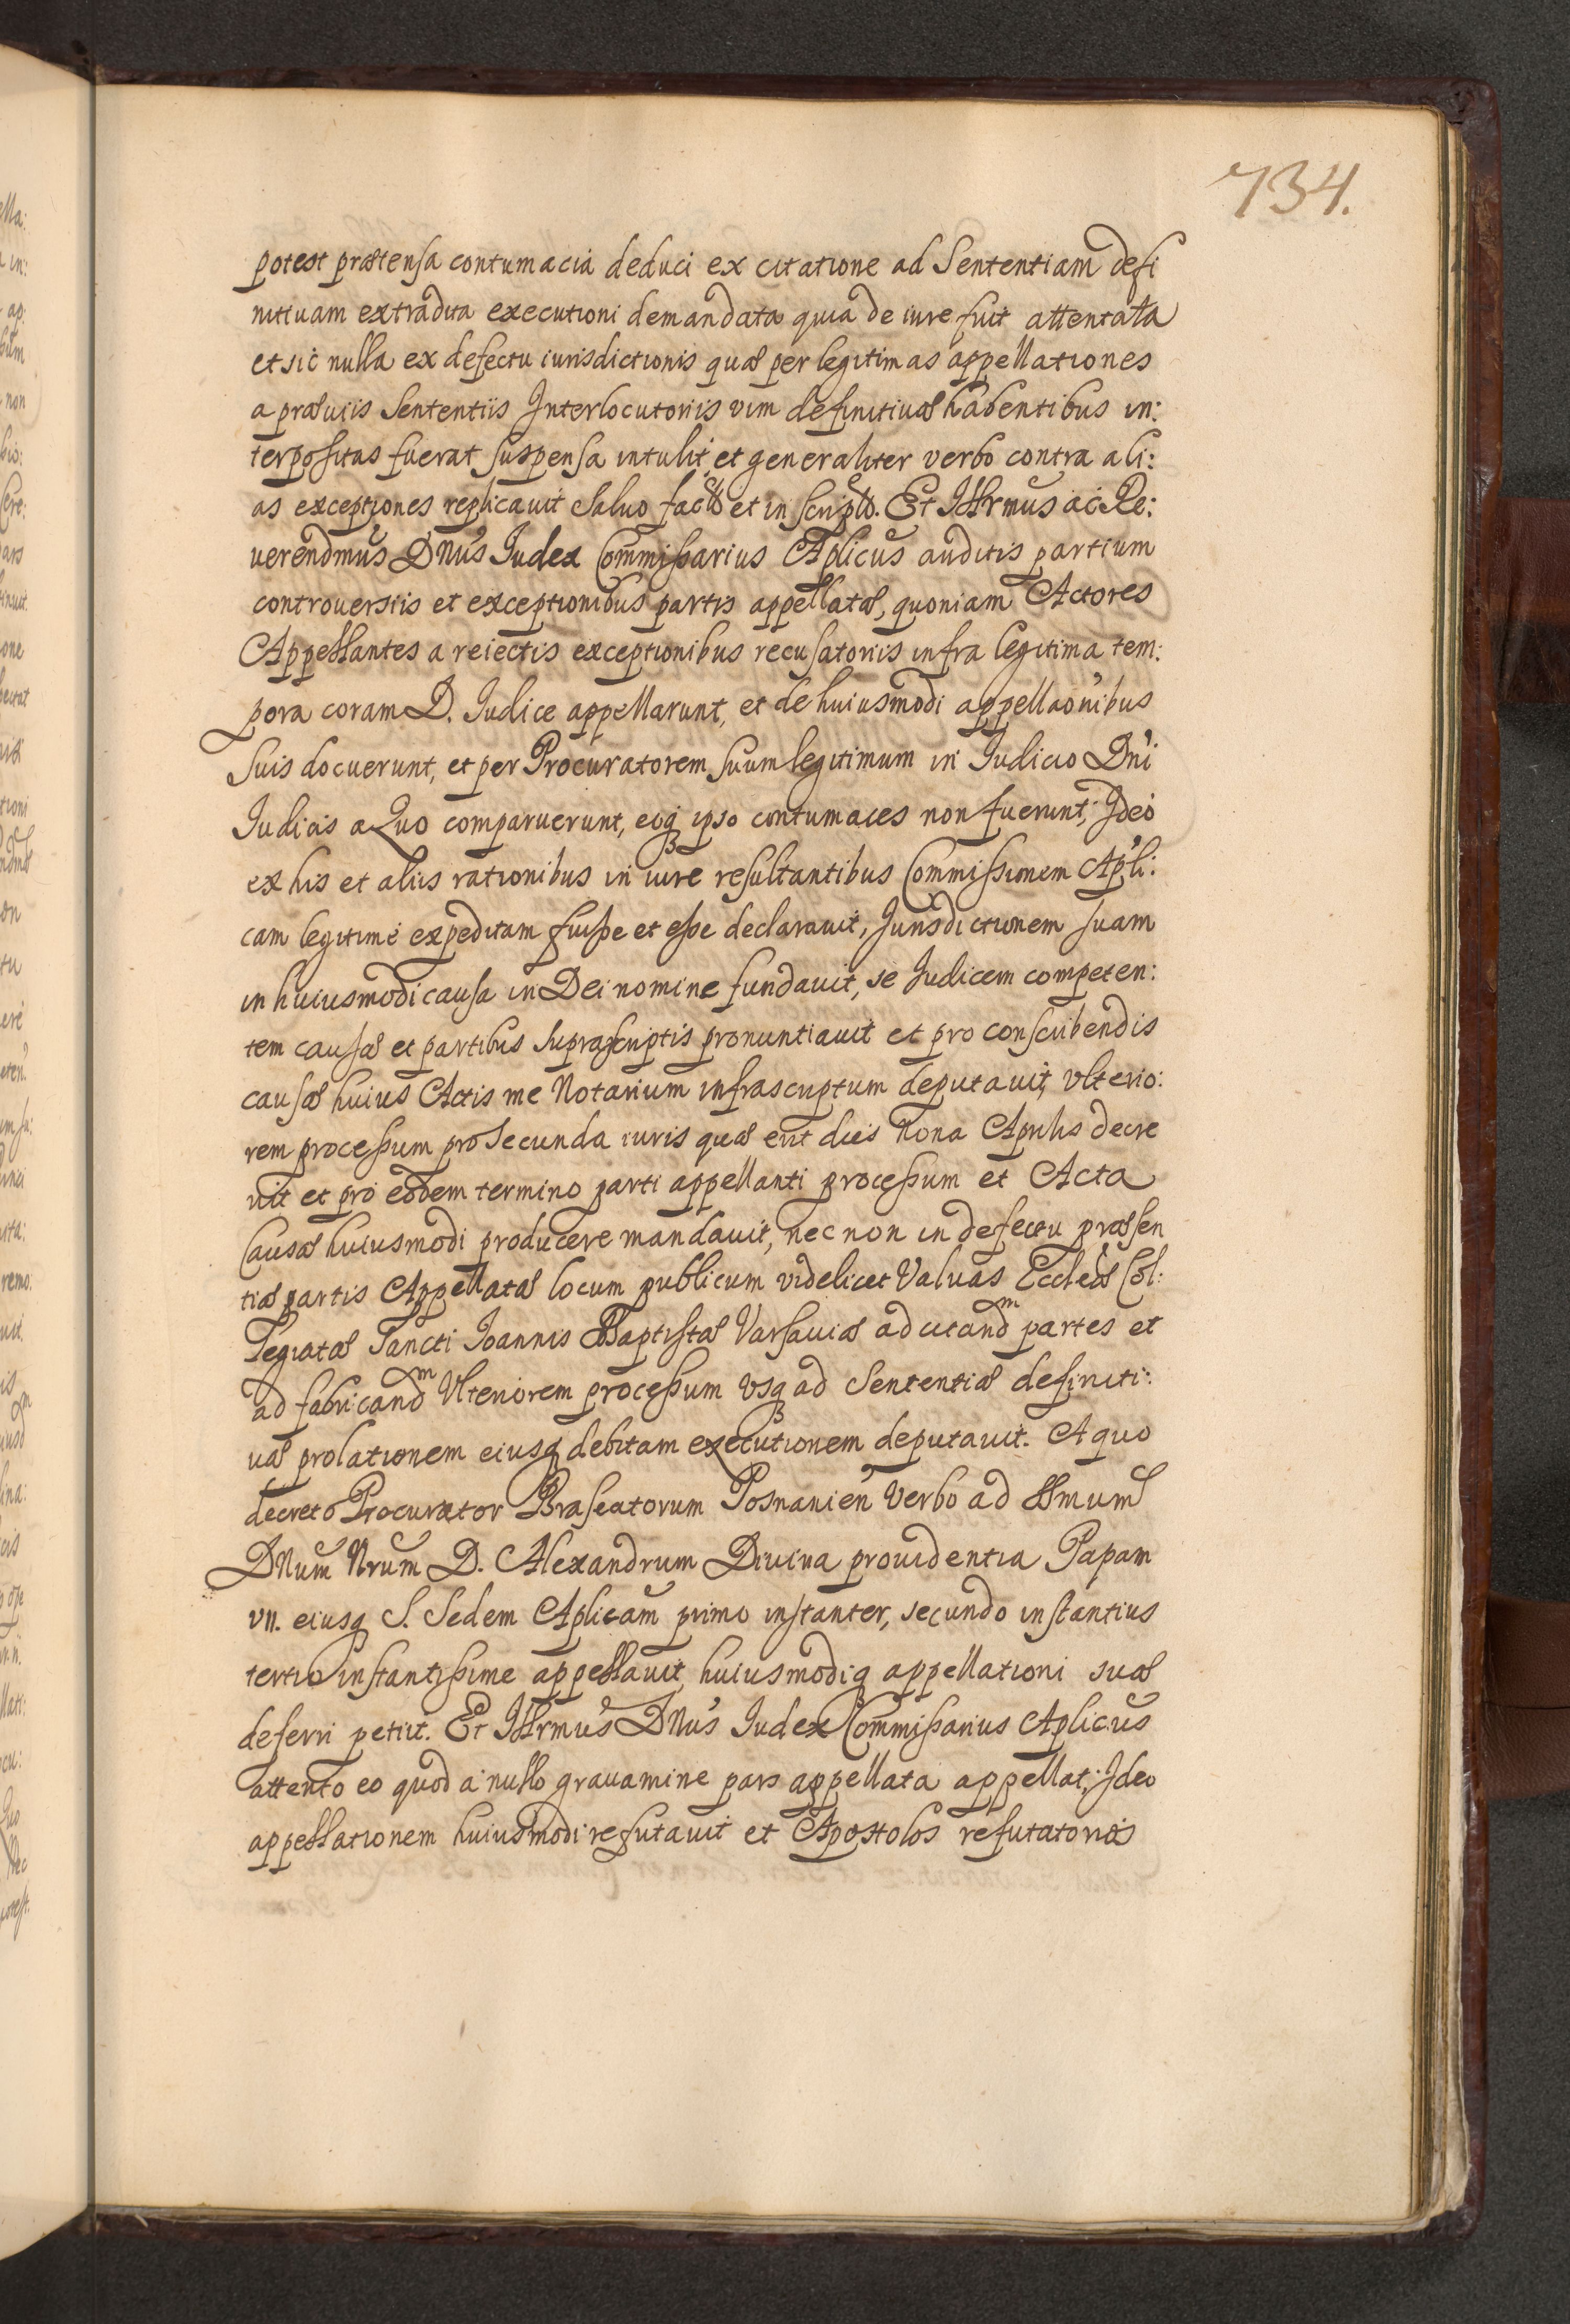 734.
potest prætensa contumacia deduci ex citatione ad Sententiam defi
nitivam extradita executioni demandata quia de iure fuit attentata
et sic nulla ex defectu iurisdictionis quæ per legitimas appellationes
a præviis Sententiis Interlocutoriis vim definitivæ habentibus in:
terpositas fuerat suspensa intulit, et generaliter verbo contra ali:
as exceptiones replicavit Salvo facto et in scripto. Et Illrmus ac Re:
verendmus Dnus Iudex Commissarius Aplicus auditis partium
controversiis et exceptionibus partis appellatæ, quoniam Actores
Appellantes a reiectis exceptionibus recusatoriis infra legitima tem:
pora coram D. Iudice appellarunt, et de huiusmodi appellaonibus
suis docuerunt, et per Procuratorem suum legitimum in Iudicio Dni
Iudicis a Quo comparuerunt, eoq ipso contumaces non fuerunt; Ideo
ex his et aliis rationibus in iure resultantibus Commissionem Apli:
cam legitime expeditam fuisse et esse declaravit, Jurisdictionem suam
in huiusmodi causa in Dei nomine fundavit, se Iudicem competen:
tem causæ et partibus suprascriptis pronuntiavit et pro conscribendis
causæ huius Actis me Notarium infrascriptum deputavit, Ulterio:
rem processum pro secunda iuris quæ erit dies Nona Aprilis decre
vit et pro eodem termino parti appellanti processum et Acta
Causæ huiusmodi producere mandavit, nec non in defectu præsen
tiæ partis Appellatæ locum publicum videlicet Valvas Eccleæ Col:
legiatæ Sancti Ioannis Baptistæ Varsaviæ ad citandm partes et
ad fabricandm Ulteriorem processum Usq ad Sententiæ definiti:
væ prolationem eiusq debitam executionem deputavit. A quo
decreto Procurator Braseatorum Posnanien Verbo ad SSmum
DNum Nrum D. Alexandrum Divina providentia Papam
VII. eiusq S. Sedem Aplicam primo instanter, secundo instantius
tertio instantissime appellavit, huiusmodiq appellationi suæ
deferri petiit. Et Illrmus DNus Iudex Commissarius Aplicus
attento eo quod a nullo gravamine pars appellata appellat; Ideo
appellationem huiusmodi refutavit et Apostolos refutatorios